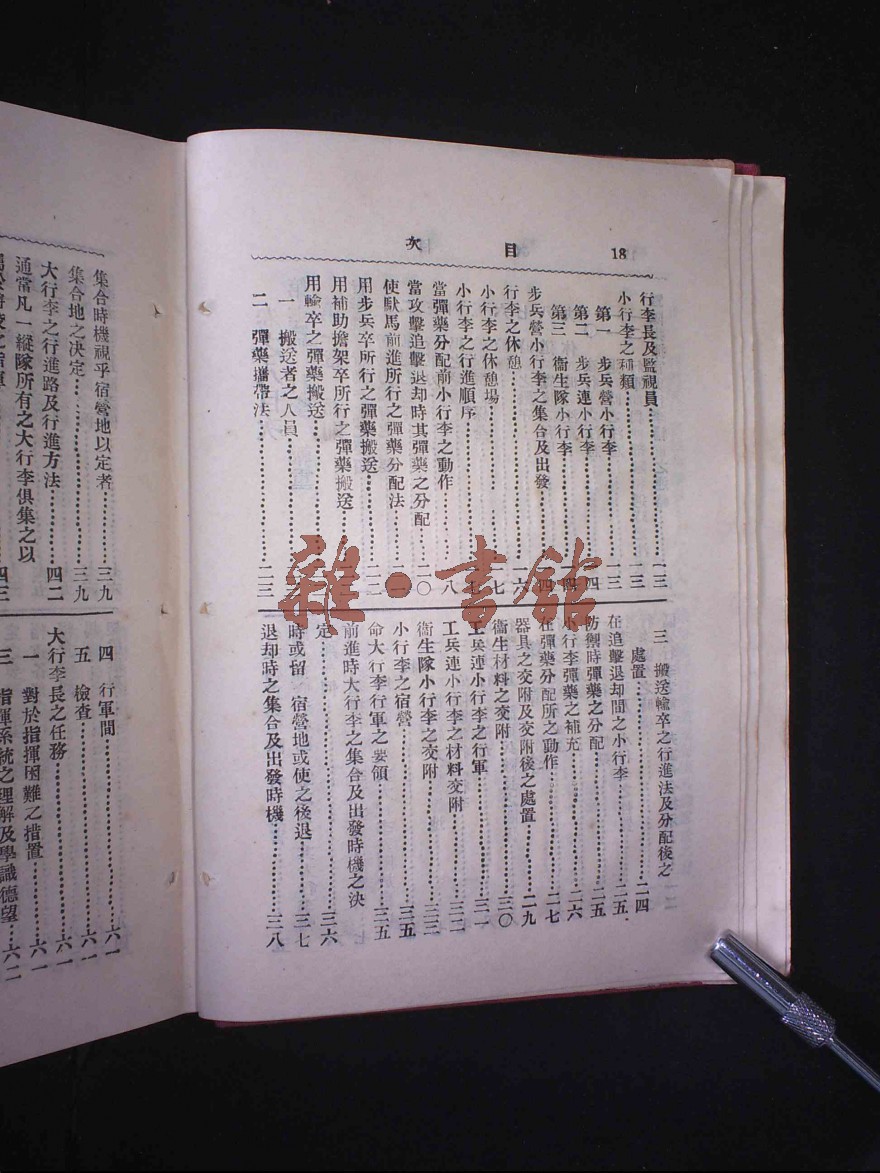 18 目次
行李長及監視員……一三
小行李之種類……一三
第一 步兵營小行李……一三
第二 步兵連小行李……四
第三 衞生隊小行李……四
步兵營小行李之集合及出發……四
行李之休憩……一六
小行李之休憩場……七
小行李之行進順序……七
當彈藥分配前小行李之動作……八
當攻擊追擊退却時其彈藥之分配……二〇
使馱馬前進所行之彈藥分配法……
用步兵卒所行之彈藥搬送……二二
用補助擔架卒所行之彈藥搬送……
用輸卒之彈藥搬送……
一 搬送者之人員……
二 彈藥攜帶法……二三
三 搬送輸卒之行進法及分配後之
處置……二四
在追擊退却間之小行李……二五
防禦時彈藥之分配……二五
小行李彈藥之補充……二六
在彈藥分配所之動作……二七
器具之交附及交附後之處置……二九
衞生材料之交附……三〇
工兵連小行李之行軍……三一
工兵連小行李之材料交附……三二
衞生隊小行李之交附……三三
小行李之宿營……三五
命大行李行軍之要領……三五
前進時大行李之集合及出發時機之決
定……三六
時或留 宿營地或使之後退……三七
退却時之集合及出發時機……三八
集合時機視乎宿營地以定者……三九
集合地之決定……三九
大行李之行進路及行進方法……四二
通當凡一縱隊所有之大行李俱集之以
四三
四 行軍間……六一
五 檢查……六一
大行李長之任務……六一
一 對於指揮困難之措置……六一
三 指揮系統之理解及學識德望……六二
雜·書館